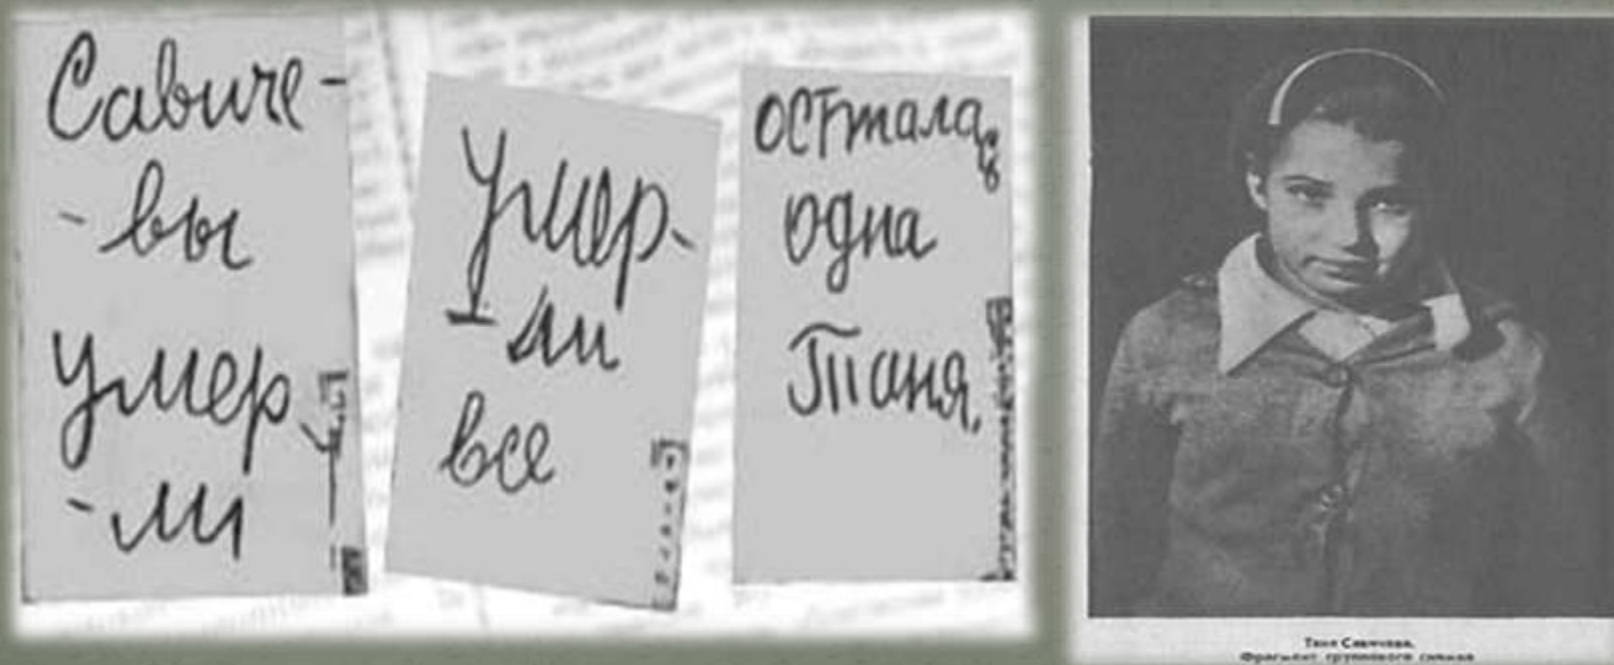 Савиче-
-вы
умер
-ли
Умер-
-ли
все
Осталась
одна
Таня.
Таня Савичева.
Фрагмент группового снимка